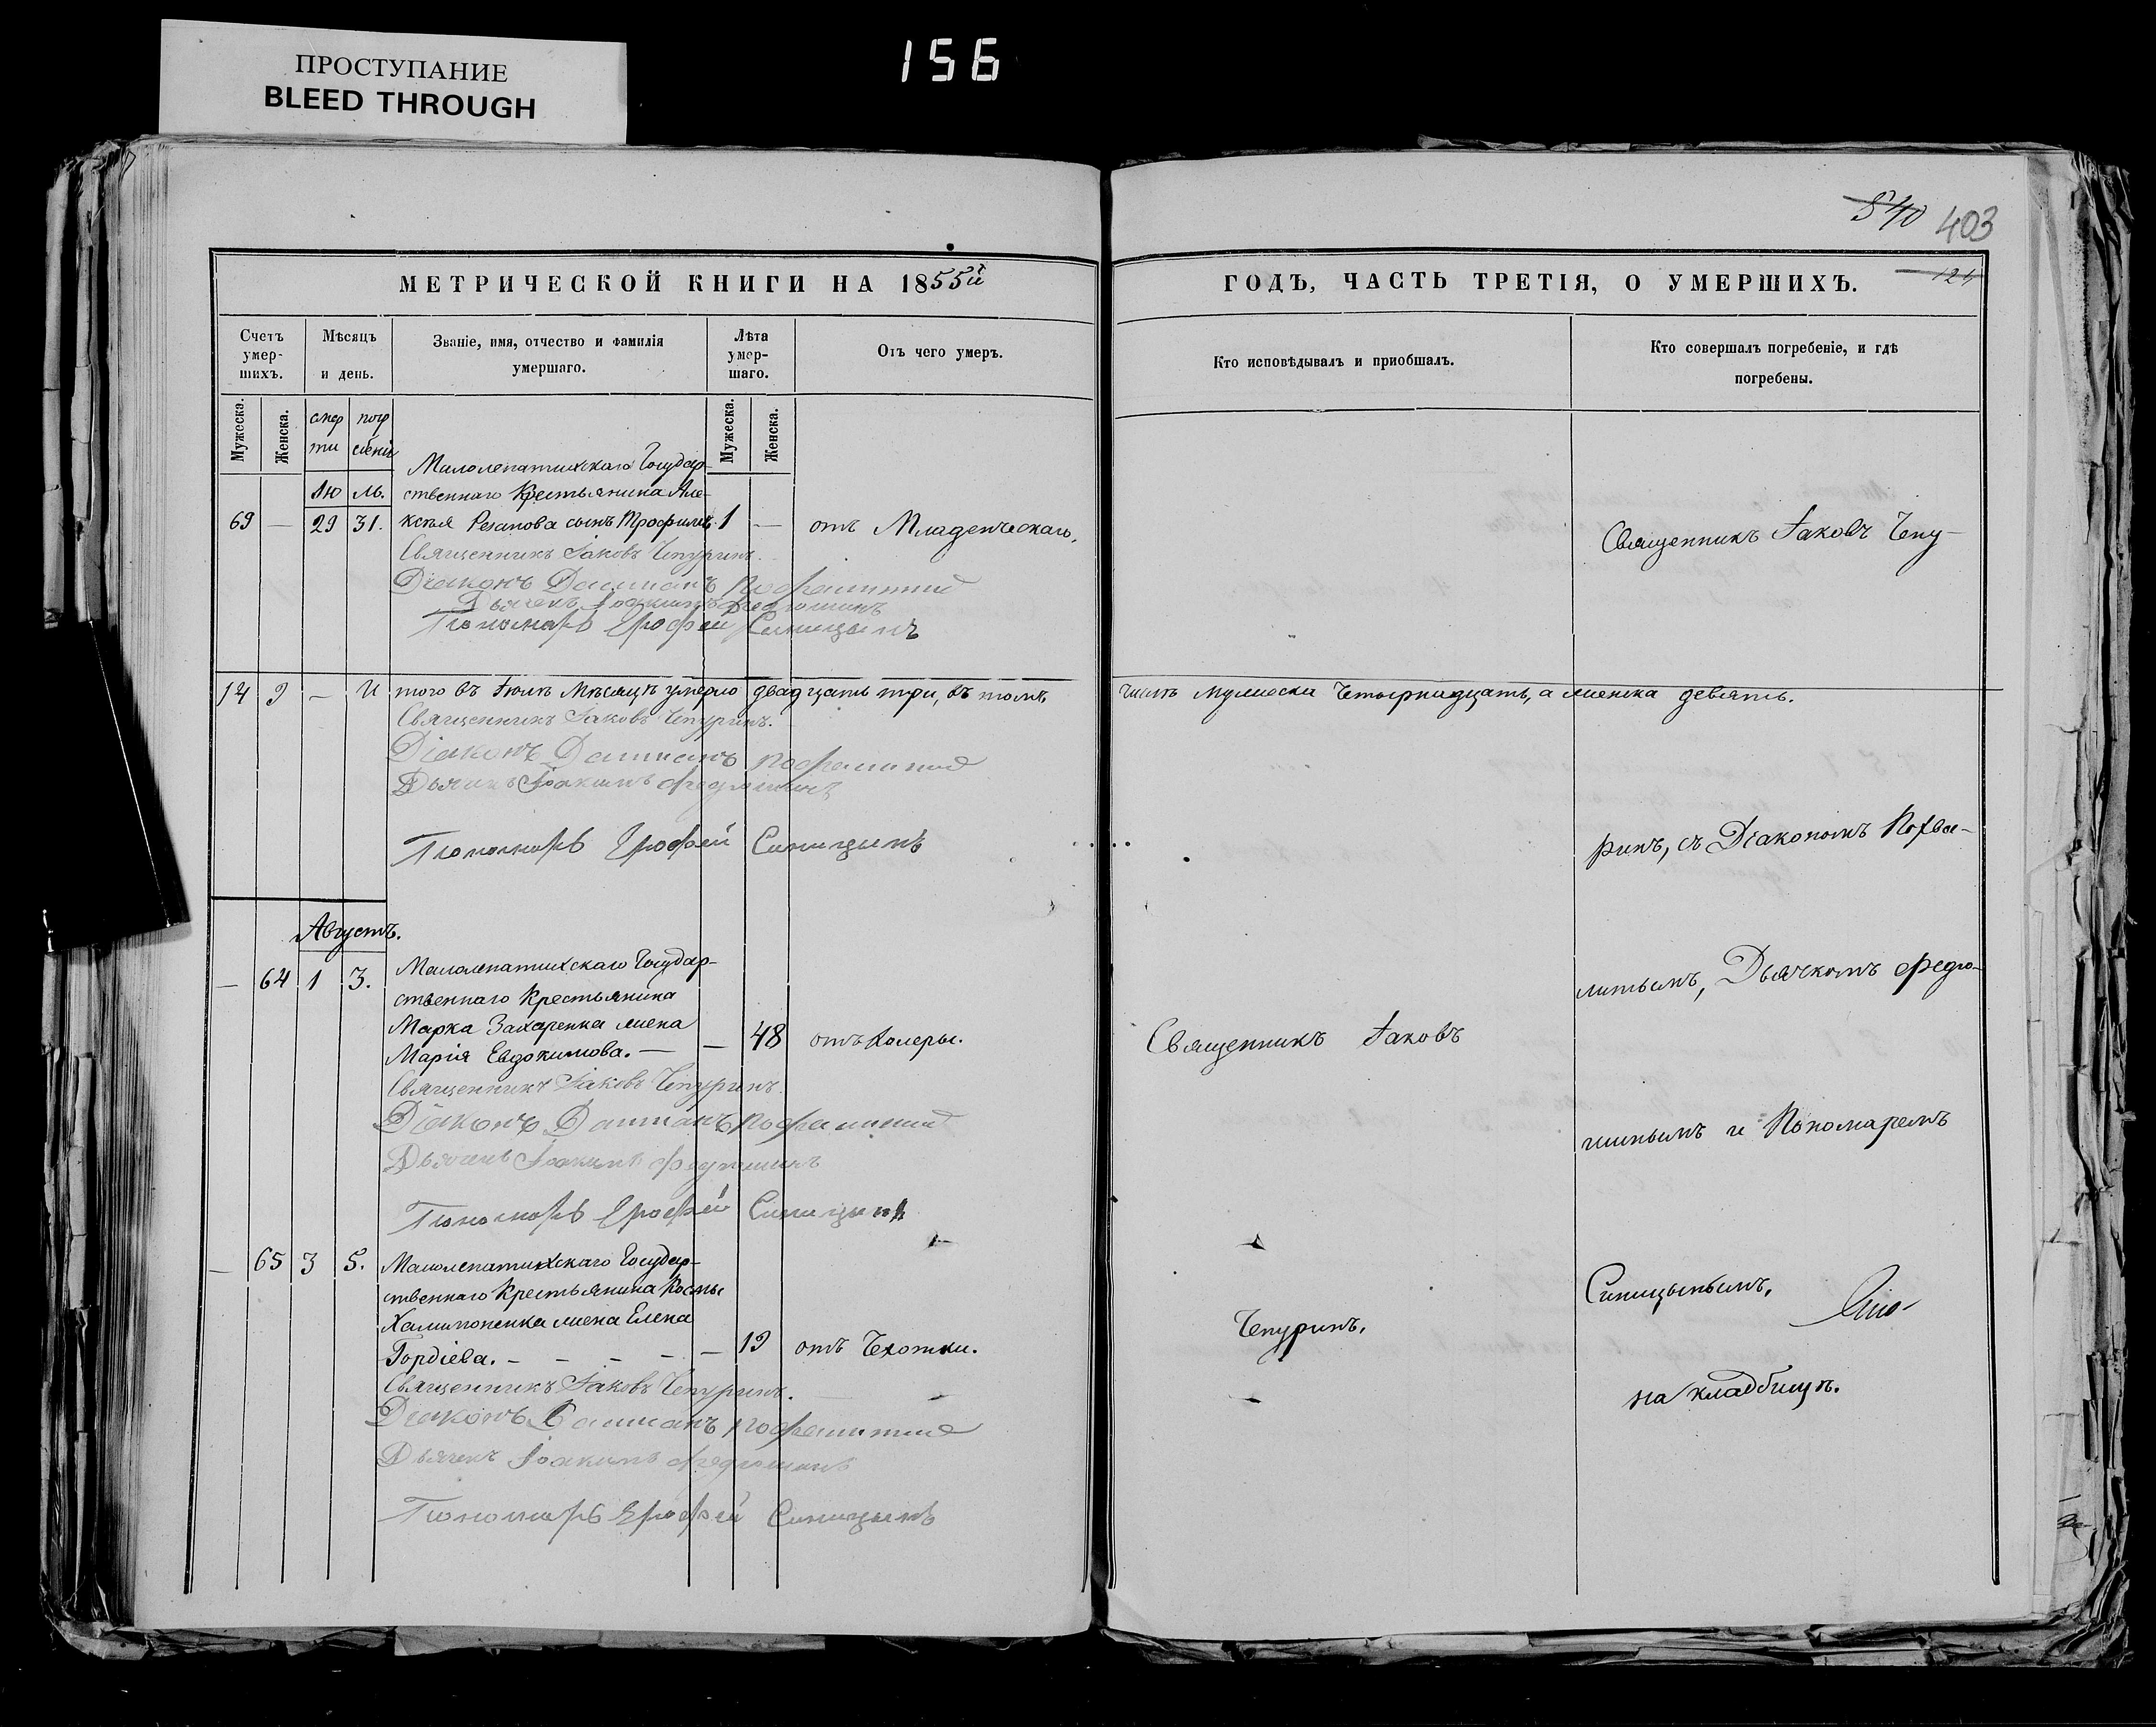 ПРОСТУПАНИЕ
BLEED THROUGH
156
540 403
МЕТРИЧЕСКОЙ КНИГИ НА 1855й
ГОДЪ, ЧАСТЬ ТРЕТІЯ, О УМЕРШИХЪ. 124
Счетъ умер-шихъ.
Мѣсяцъ и день.
Званіе, имя, отчество и фамилія умершаго.
Лѣта умер-шаго.
Отъ чего умеръ.
Кто исповѣдывалъ и приобщалъ.
Кто совершалъ погребеніе, и гдѣ погребены.
Мужеска. Женска. смерти погребенія Мужеска. Женска.
Малолепатихскаго Государ-
Іюль. ственнаго Крестьянина Але-
69 — 29 31. ксѣя Резапова сынъ Трофимъ. 1 — отъ Младенческаго,
Священникъ Іаковъ Чепуринъ.
Діаконъ Дамианъ
Дьячекъ Іоакимъ Федюшинъ
Пономарь Ерофей Синицынъ
14 9 — Итого въ Іюлѣ Мѣсяцѣ умерло двадцать три, въ томъ числѣ мужеска Четырнадцать, а женска девять.
Священникъ Іаковъ Чепуринъ.
Діаконъ Дамианъ
Дьячекъ Іоакимъ Федюшинъ
Пономарь Ерофей Синицынъ
Августъ.
— 64 1 3. Малолепатихскаго Государ-
ственнаго Крестьянина
Марка Захаренка жена
Марія Евдокимова. — — 48 отъ Холеры.
Священникъ Іаковъ Чепуринъ.
Діаконъ Дамианъ
Дьячекъ Іоакимъ Федюшинъ
Пономарь Ерофей Синицынъ
— 65 3 5. Малолепатихскаго Государ-
ственнаго Крестьянина Космы
Халимоненка жена Елена
Гордіева. — — — — — 19 отъ Чахотки.
Священникъ Іаковъ Чепуринъ.
Діаконъ Дамианъ
Дьячекъ Іоакимъ Федюшинъ
Пономарь Ерофей Синицынъ
Священникъ Іаковъ
Чепуринъ,
Священникъ Іаковъ Чепу-
ринъ, съ Діакономъ Похва-
литымъ, Дьячкомъ Федю-
шинымъ и Пономаремъ
Синицынымъ,
на кладбищѣ.